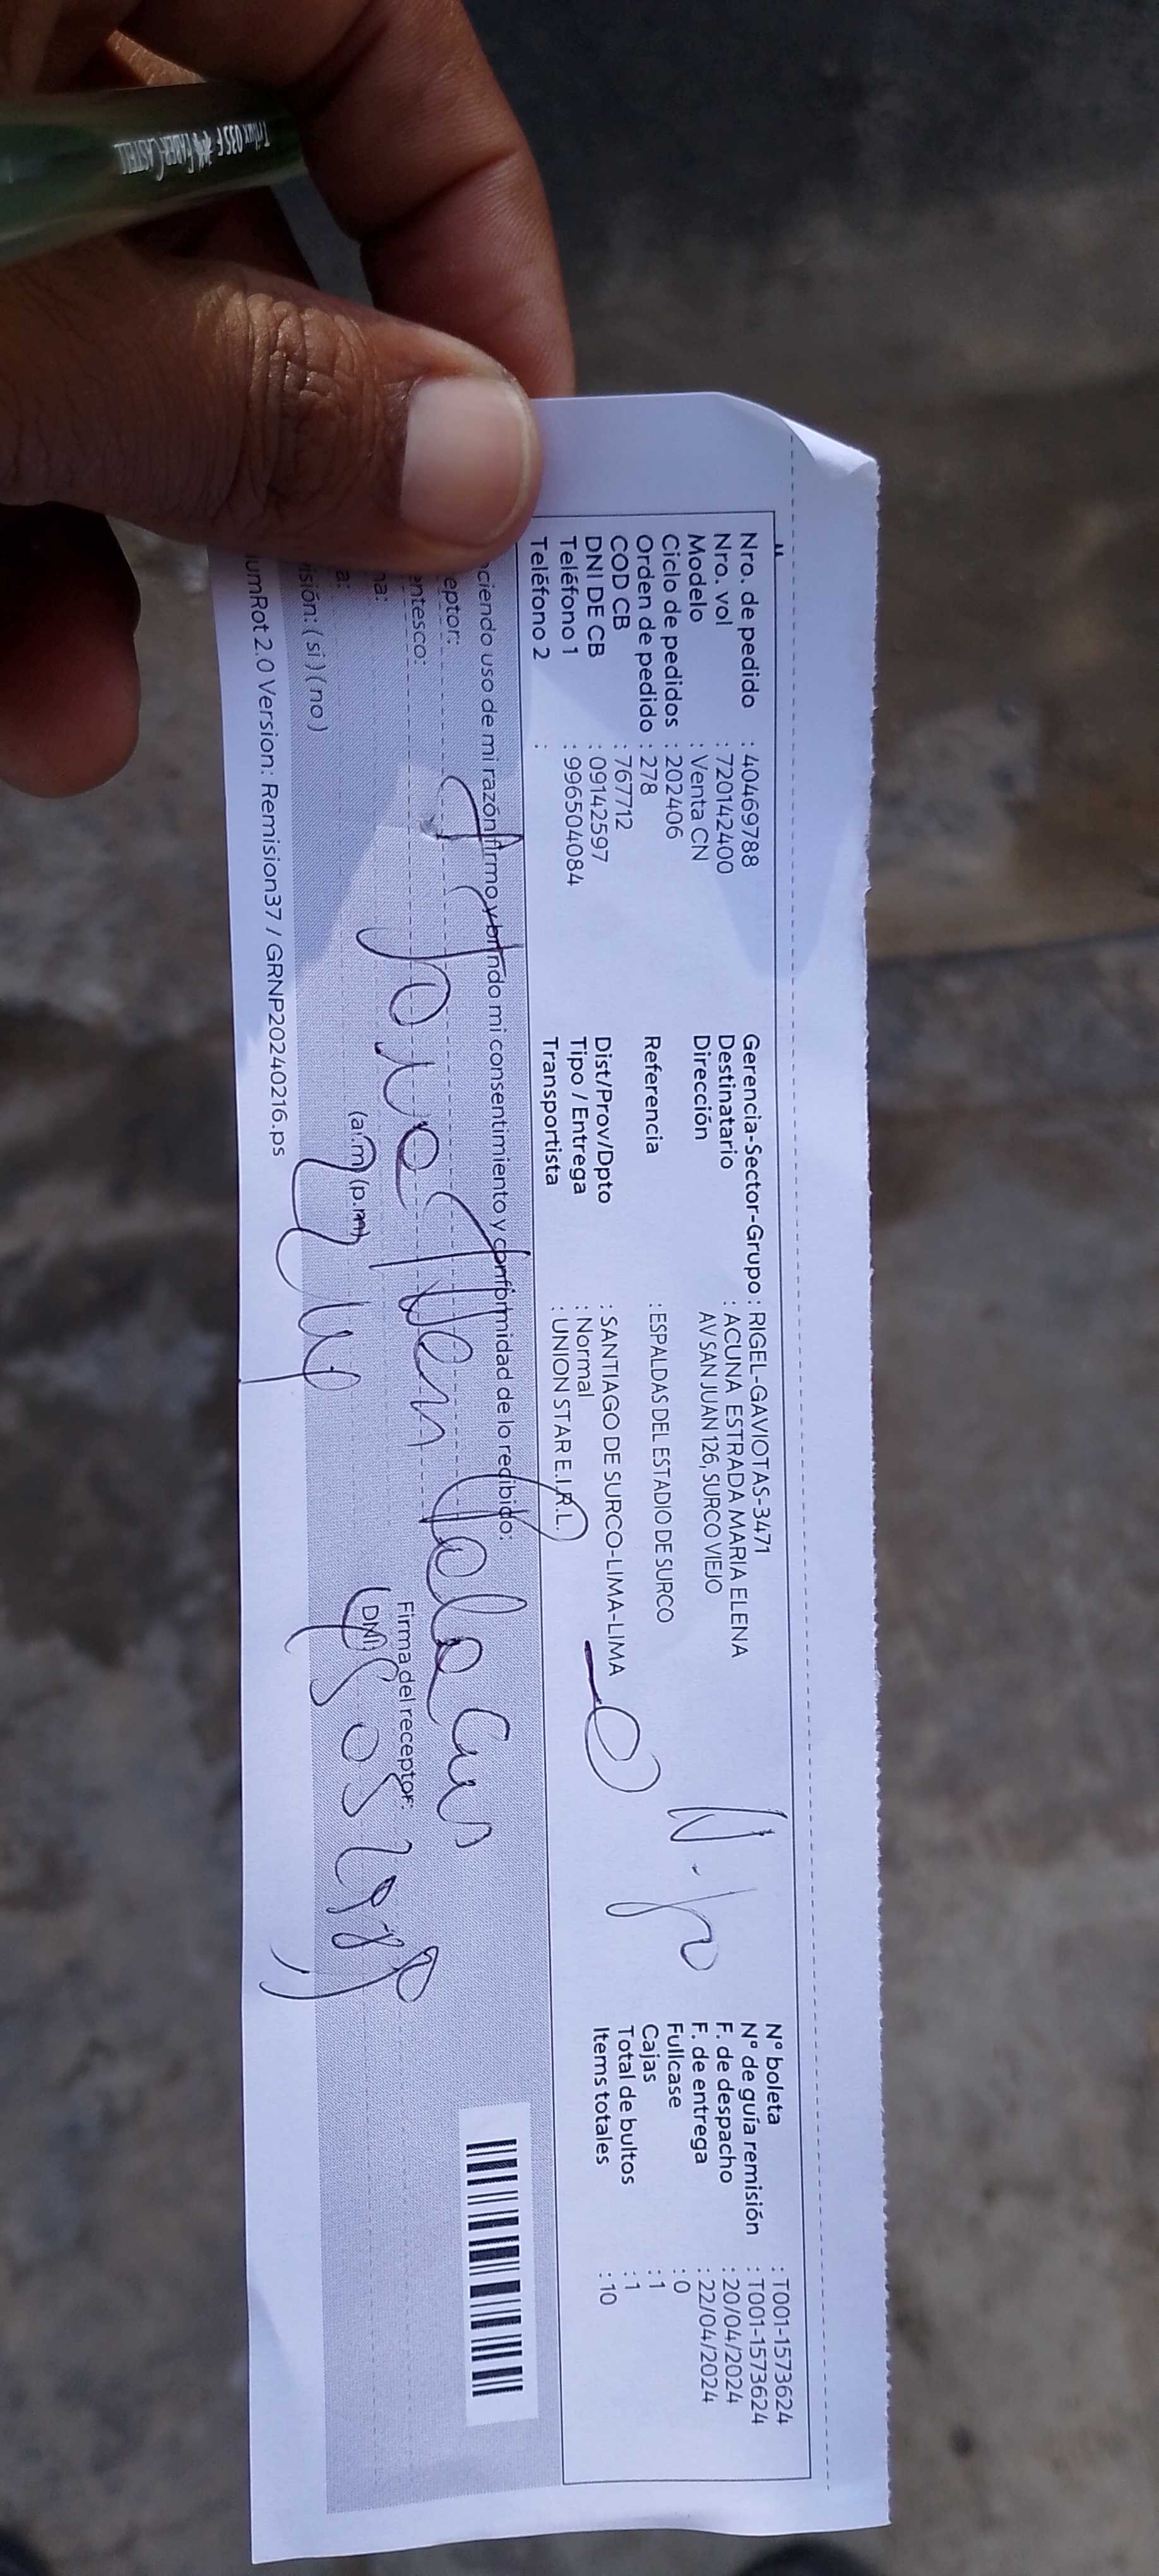 Trilux 035 F FABER-CASTELL
Nro. de pedido : 40469788
Nro. vol : 720142400
Modelo : Venta CN
Ciclo de pedidos : 202406
Orden de pedido : 278
COD CB : 767712
DNI DE CB : 09142597
Teléfono 1 : 996504084
Teléfono 2 :
Gerencia-Sector-Grupo : RIGEL-GAVIOTAS-3471
Destinatario : ACUNA ESTRADA MARIA ELENA
Dirección AV SAN JUAN 126, SURCO VIEJO
Referencia : ESPALDAS DEL ESTADIO DE SURCO
Dist/Prov/Dpto : SANTIAGO DE SURCO-LIMA-LIMA
Tipo / Entrega : Normal
Transportista : UNION STAR E.I.R.L.
N° boleta : T001-1573624
N° de guía remisión : T001-1573624
F. de despacho : 20/04/2024
F. de entrega : 22/04/2024
Fullcase : 0
Cajas : 1
Total de bultos : 1
Items totales : 10
ciendo uso de mi razón firmo y brindo mi consentimiento y conformidad de lo recibido:
eptor:
entesco:
na:
a: (a.m) (p.m)
isión: ( si ) ( no )
Firma del receptor:
(DNI)
umRot 2.0 Version: Remision37 / GRNP20240216.ps